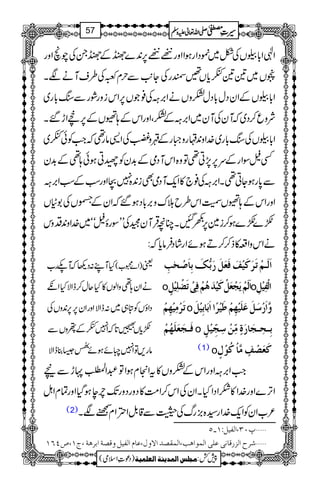 سیرتِ مصطفیٰ صلی اللہ تعالیٰ علیہ وسلم 57
الٰہی ابابیلوں کی شکل میں نمودار ہوا اور ننھے ننھے پرندے جھنڈ کے جھنڈ جن کی چونچ اور
پنجوں میں تین تین کنکریاں تھیں سمندر کی جانب سے حرم کعبہ کی طرف آنے لگے۔
ابابیلوں کے ان دل بادل لشکروں نے ابرہہ کی فوجوں پر اس زور شور سے سنگ باری
شروع کر دی کہ آن کی آن میں ابرہہ کے لشکر، اور اس کے ہاتھیوں کے پرخچے اڑ گئے۔
ابابیلوں کی سنگ باری خداوند قہار و جبار کے قہر و غضب کی ایسی مار تھی کہ جب کوئی کنکری
کسی فیل سوار کے سر پر پڑتی تھی تو وہ اس آدمی کے بدن کو چھیدتی ہوئی ہاتھی کے بدن
سے پار ہو جاتی تھی۔ ابرہہ کی فوج کا ایک آدمی بھی زندہ نہیں بچا اور سب کے سب ابرہہ
اور اس کے ہاتھیوں سمیت اس طرح ہلاک و برباد ہو گئے کہ ان کے جسموں کی بوٹیاں
ٹکڑے ٹکڑے ہو کر زمین پر بکھر گئیں۔ چنانچہ قرآن مجید کی ’’سورۂ فیل‘‘ میں خداوند قدوس
نے اس واقعہ کا ذکر کرتے ہوئے ارشاد فرمایا کہ:
اَلَمْ تَرَ كَيْفَ فَعَلَ رَبُّكَ بِاَصْحٰبِ
الْفِيْلِ o اَلَمْ يَجْعَلْ كَيْدَهُمْ فِيْ تَضْلِيْلٍ o
وَّاَرْسَلَ عَلَيْهِمْ طَيْرًا اَبَابِيْلَ o تَرْمِيْهِمْ
بِحِجَارَةٍ مِّنْ سِجِّيْلٍ o فَجَعَلَهُمْ
كَعَصْفٍ مَّاْكُوْلٍ o (1)
یعنی (اے محبوب) کیا آپ نے نہ دیکھا کہ آپ کے رب
نے ان ہاتھی والوں کا کیا حال کر ڈالا کیا ان کے
داؤں کو تباہی میں نہ ڈالا اور ان پر پرندوں کی
اس کے لشکروں کا یہ انجام ہوا تو عبدالمطلب پہاڑ سے نیچے
اترے اور خدا کا شکر ادا کیا۔ ان کی اس کرامت کا دور دور تک چرچا ہو گیا اور تمام اہل
عرب ان کو ایک خدا رسیدہ بزرگ کی حیثیت سے قابل احترام سمجھنے لگے۔ (2)
۱……پ۳۰، الفیل:۱-۵
……شرح الزرقانی علی المواهب، المقصد الاول، عام الفیل وقصة ابرهة، ج۱، ص۱۶۴
پیش کش: مجلس المدینة العلمیة (دعوتِ اسلامی)